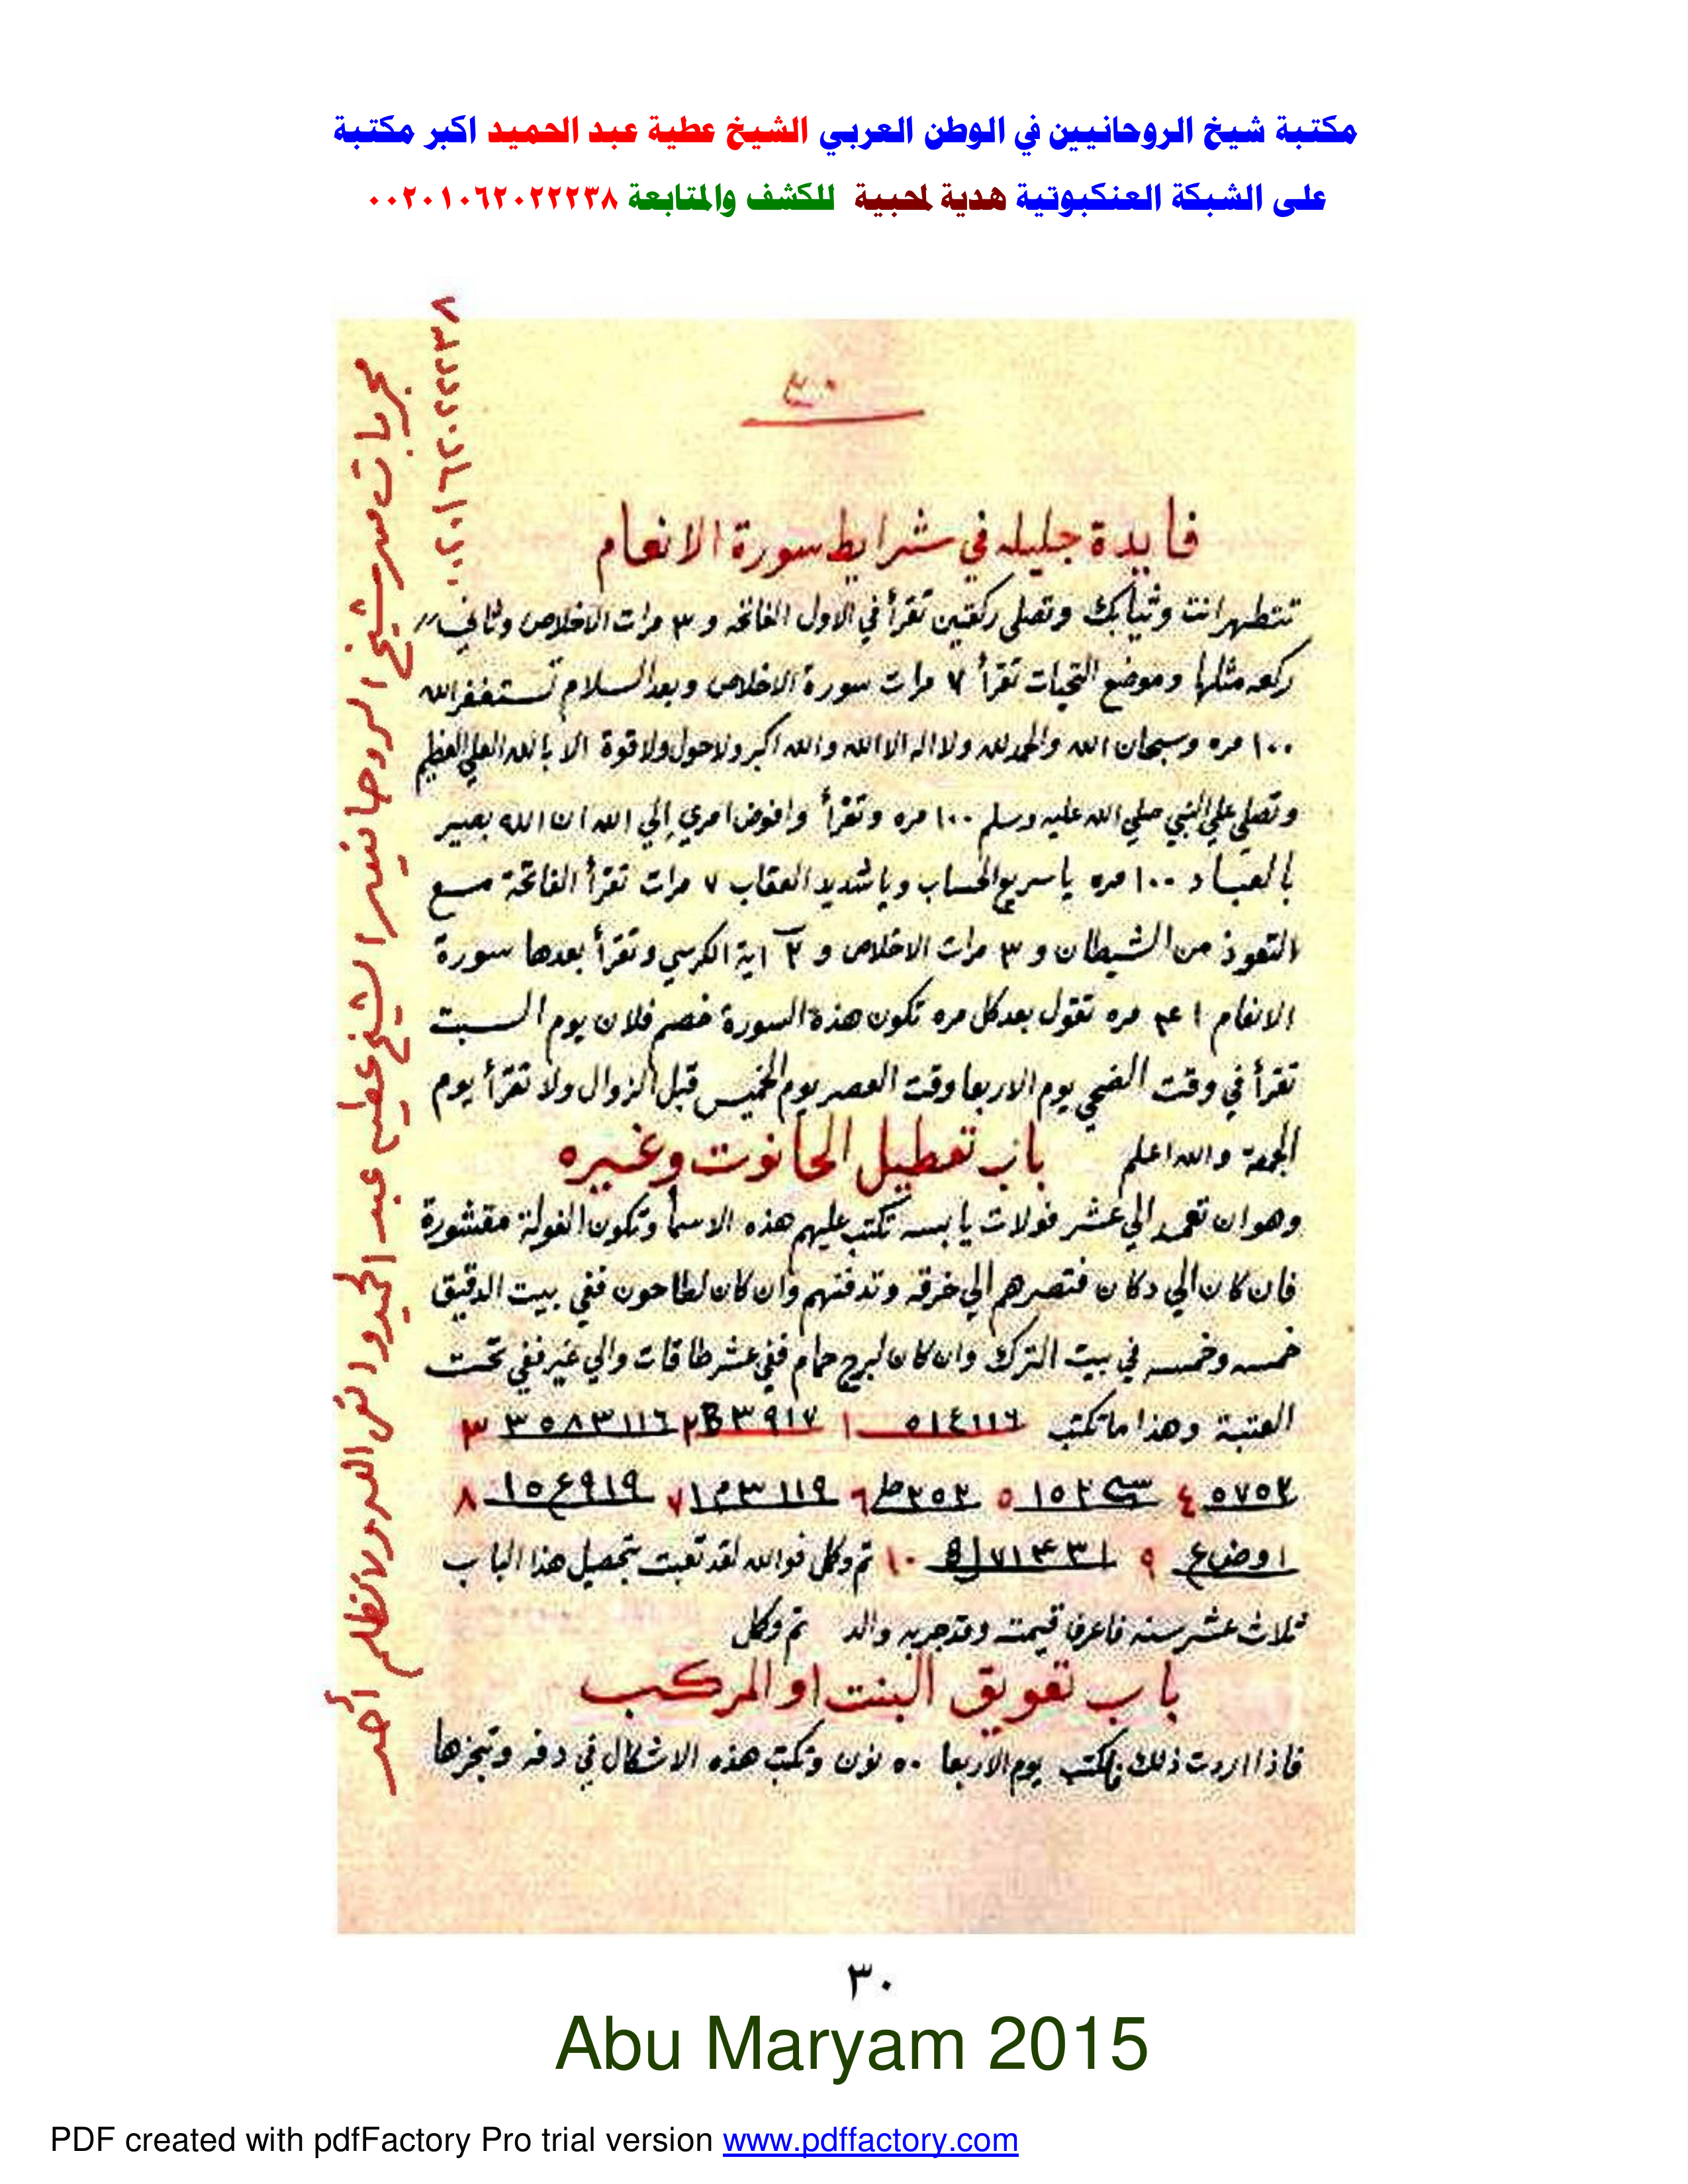 مكتبة شيخ الروحانيين في الوطن العربي الشيخ عطية عبد الحميد اكبر مكتبة
على الشبكة العنكبوتية هدية لمحبية للكشف والمتابعة ٠٠٢٠١٠٦٢٠٢٢٢٣٨
٣٠
فايدة جليله في شرايط سورة الانعام
تتطهر انت وثيابك وتصلي ركعتين تقرأ في الاول الفاتحه و ٣ مرات الاخلاص وثاني
ركعه مثلها وموضع التحيات تقرأ ٧ مرات سورة الاخلاص وبعد السلام تستغفر الله
١٠٠ مره وسبحان الله والحمد لله ولا اله الا الله والله اكبر ولا حول ولا قوة الا بالله العلي العظيم
وتصلي علي النبي صلي الله عليه وسلم ١٠٠ مره وتقرأ وافوض امري إلي الله ان الله بصير
بالعباد ١٠٠ مره يا سريع الحساب ويا شديد العقاب ٧ مرات تقرأ الفاتحة مع
التعوذ من الشيطان و ٣ مرات الاخلاص و ٣ اية الكرسي وتقرأ بعدها سورة
الانعام ٤١ مره تقول بعد كل مره تكون هذه السورة خصم فلان يوم السبت
تقرأ في وقت الضحي يوم الاربعا وقت العصر يوم الخميس قبل الزوال ولا تقرأ يوم
الجمعة والله اعلم باب تعطيل الحانوت وغيره
وهو ان تعمد الي عشر فولات يابسه تكتب عليهم هذه الاسمأ وتكون الفولة مقشورة
فان كان الي دكان فتصرهم الي خرقه وتدفنهم وان كان لطاحون ففي بيت الدقيق
خمسه وخمسه في بيت الترك وان كان لبرج حمام ففي عشر طاقات والي غير ففي تحت
العتبة وهذا ما تكتب ٥١٤١١٦ ١ ٣٩١٧ ٢ ٣٥٨٣١١٦ ٣
٥٧٥٢ ٤ ١٥٢ ٥ ٢٥٢ط ٦ ٧ ٨
اوضاع ٩ ١٠ تم وكل فوالله لقد تعبت بتحصيل هذا الباب
ثلاث عشر سنه فاعرف قيمته وقد جربه والد تم وكل
باب تعويق البنت او المركب
فاذا اردت ذلك فاكتب يوم الاربعا ٥٠ نون وتكتب هذه الاشكال في دفه وتبخرها
مجربات سر شيخ الروحانيين الشيخ عطيه عبد الحميد
٠٠٢٠١٠٦٢٠٢٢٢٣٨
٣٠
Abu Maryam 2015
PDF created with pdfFactory Pro trial version www.pdffactory.com